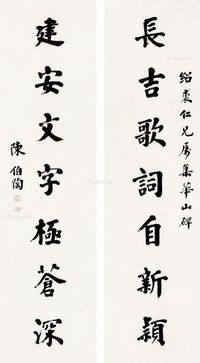 長吉歌詞自新穎
紹裘仁兄屬集華山碑
建安文字極蒼深
陳伯陶